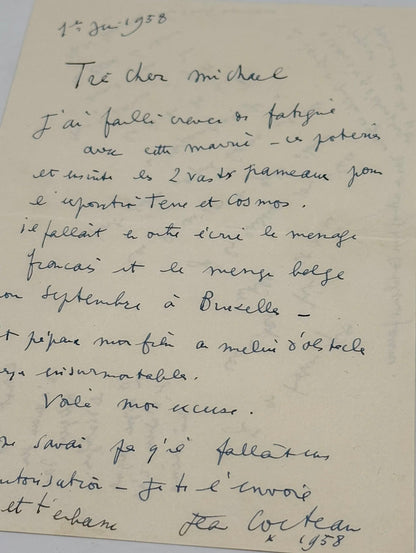 1er Jui 1958
Très cher Michael
J'ai failli crever de fatigue
avec cette mairie - ces poteries
et ensuite les 2 vastes panneaux pour
l'exposition Terre et Cosmos.
il fallait en outre écrire le message
français et le message belge
septembre à Bruxelles -
préparer mon film au milieu d'obstacles
insurmontables.
Voilà mon excuse.
savais pas qu'il fallait
autorisation - Je te l'envoie
et t'embrasse Jean Cocteau
* 1958